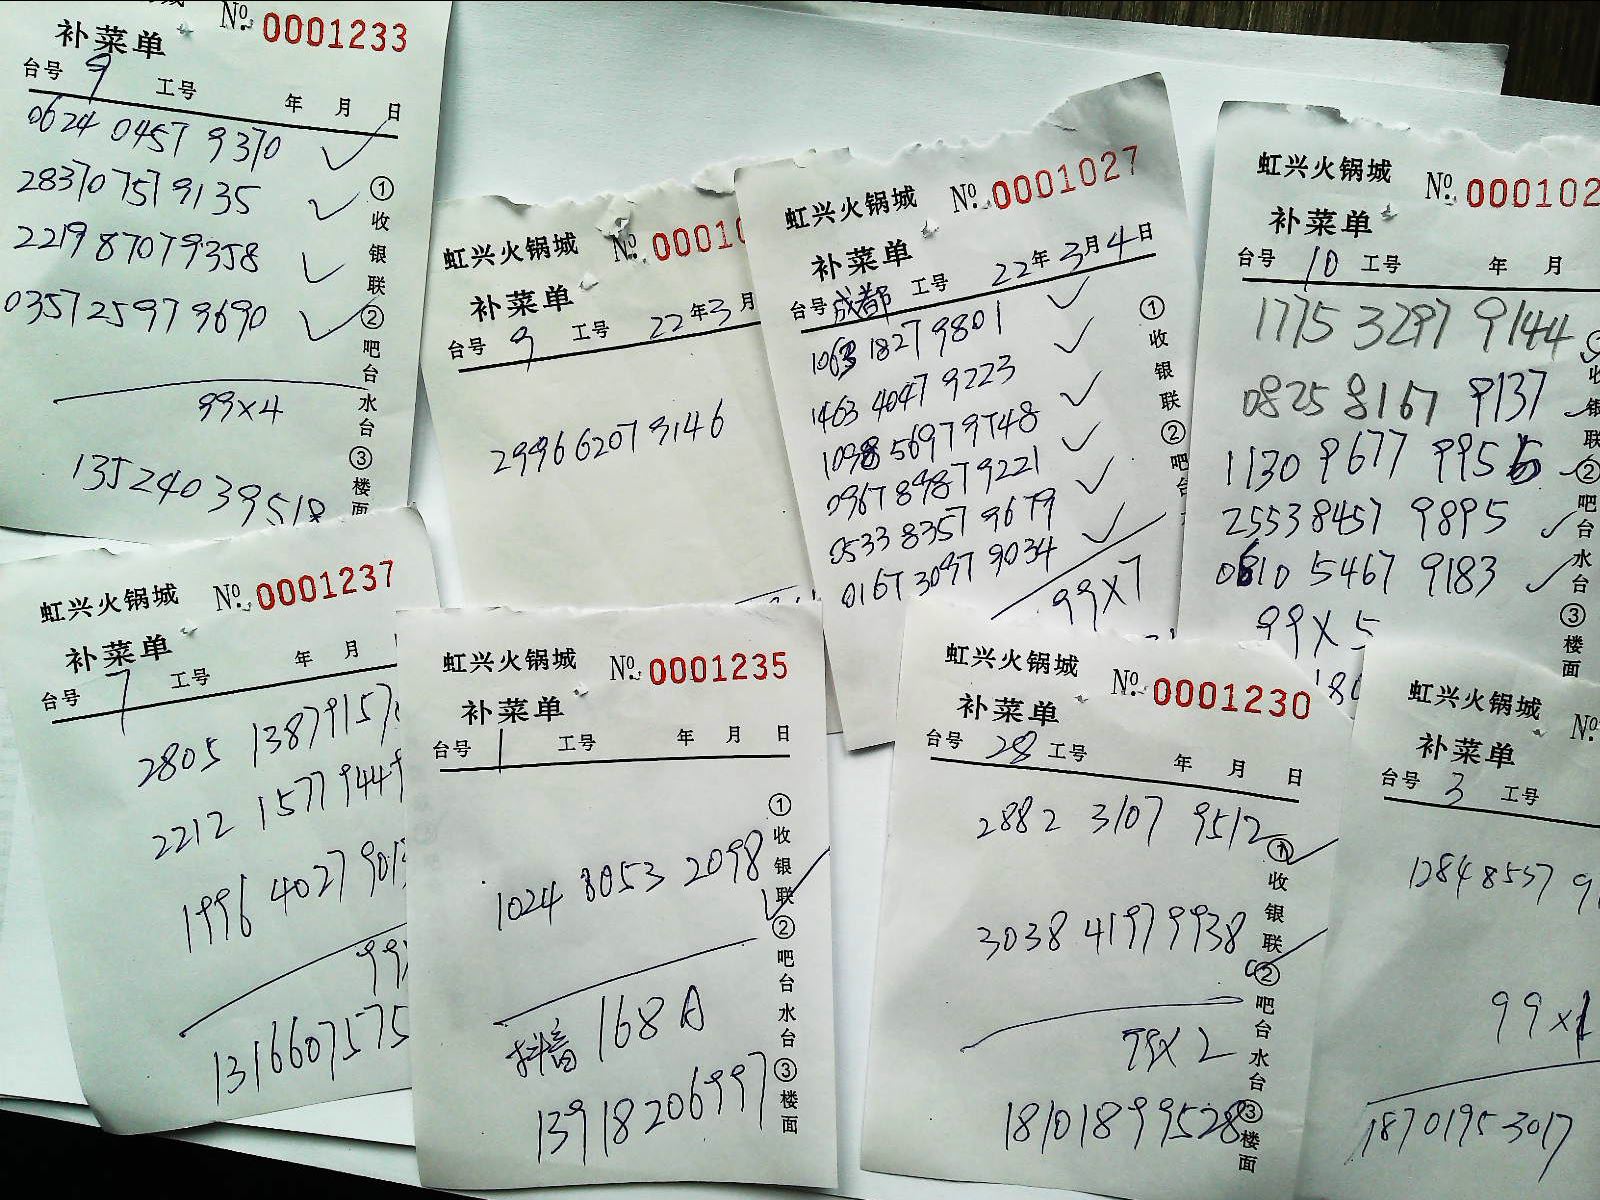 No. 0001233
补菜单
台号 9 工号 年 月 日
0624 0457 9370
2837 0757 9135
2219 8707 9358
0357 2597 9690
99×4
13524039518
①收银联②吧台水台③楼面
虹兴火锅城 No. 00010
补菜单
台号 9 工号 22年3月
2996 6207 9146
虹兴火锅城 No. 0001027
补菜单
台号 成都 工号 22年3月4日
1063 1827 9801
1463 4047 9223
1098 5697 9748
0967 8987 9221
0533 8357 9679
0167 3097 9034
99×7
①收银联②吧台
虹兴火锅城 No. 000102
补菜单
台号 10 工号 年 月
1775 3297 9144
0825 8167 9137
1130 9677 9956
2553 8457 9895
0610 5467 9183
99×5
180
收银联②吧台水台③楼面
虹兴火锅城 No. 0001237
补菜单
台号 7 工号 年 月
2805 1387 9157
2212 1577 944
1996 4027 901
99
1316607575
虹兴火锅城 No. 0001235
补菜单
台号 1 工号 年 月 日
1024 8053 2098
抖音 168A
13918206997
①收银联②吧台水台③楼面
虹兴火锅城 No. 0001230
补菜单
台号 28 工号 年 月 日
2882 3107 9512
3038 4197 9938
99×2
18101899528
①收银联②吧台水台③楼面
虹兴火锅城 No.
补菜单
台号 3 工号
1284 8557 91
99×1
18701953017